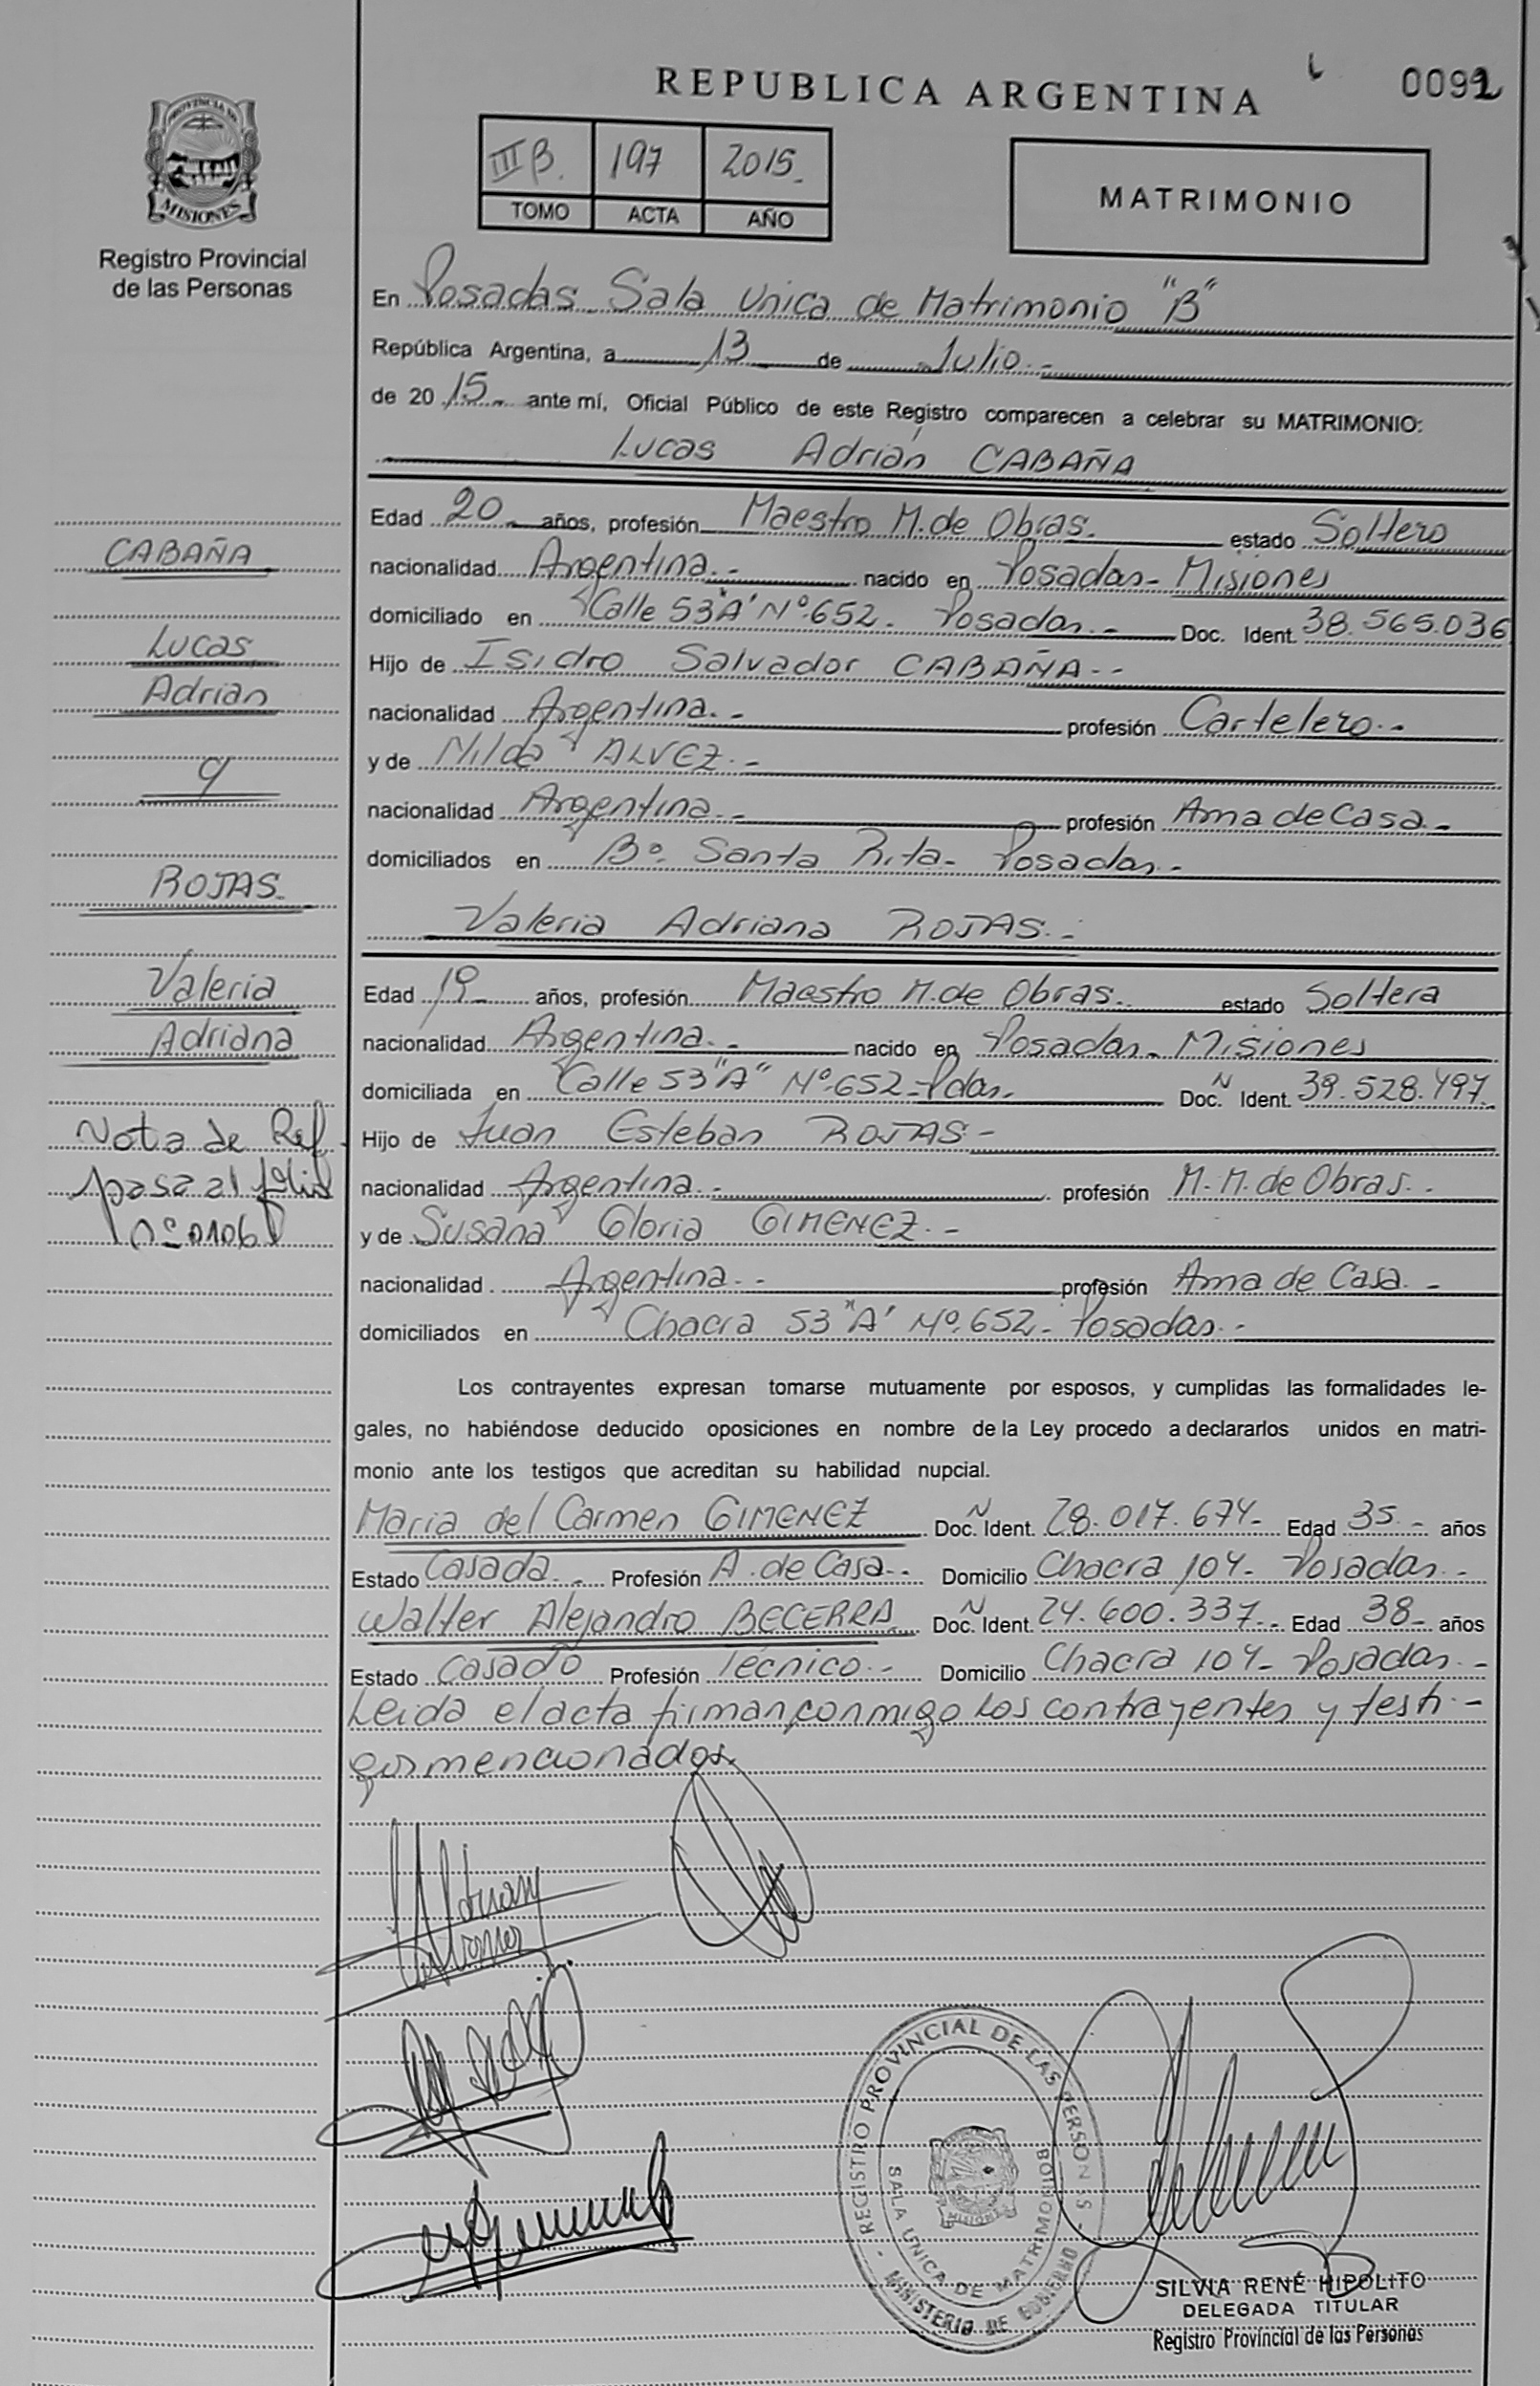 REPUBLICA ARGENTINA
0092
PROVINCIA DE
MISIONES
Registro Provincial
de las Personas
III B. 197 2015.
TOMO ACTA AÑO
MATRIMONIO
En Posadas Sala Unica de Matrimonio "B"
República Argentina, a 13 de Julio.-
de 2015- ante mí, Oficial Público de este Registro comparecen a celebrar su MATRIMONIO:
Lucas Adrián CABAÑA
Edad 20 años, profesión Maestro M. de Obras. estado Soltero
nacionalidad Argentina.- nacido en Posadas- Misiones
domiciliado en Calle 53 "A" Nº 652. Posadas.- Doc. Ident. 38.565.036
Hijo de Isidro Salvador CABAÑA.-
nacionalidad Argentina.- profesión Cartelero.-
y de Nilda ALVEZ.-
nacionalidad Argentina.- profesión Ama de Casa.-
domiciliados en Bº. Santa Rita- Posadas.-
Valeria Adriana ROJAS.-
Edad 19- años, profesión Maestro M. de Obras. estado Soltera
nacionalidad Argentina.- nacido en Posadas- Misiones
domiciliada en Calle 53 "A" Nº 652- Pdas.- Doc. N Ident. 39.528.497.
Hijo de Juan Esteban ROJAS-
nacionalidad Argentina.- profesión M. M. de Obras.-
y de Susana Gloria GIMENEZ.-
nacionalidad Argentina.- profesión Ama de Casa.-
domiciliados en Chacra 53 "A" Nº 652- Posadas.-
CABAÑA
Lucas
Adrián
y
ROJAS.
Valeria
Adriana
Nota de Ref.
pasa al folio
nº 0106
Los contrayentes expresan tomarse mutuamente por esposos, y cumplidas las formalidades le-
gales, no habiéndose deducido oposiciones en nombre de la Ley procedo a declararlos unidos en matri-
monio ante los testigos que acreditan su habilidad nupcial.
Maria del Carmen GIMENEZ Doc. N Ident. 28.017.674- Edad 35.- años
Estado Casada.- Profesión A. de Casa.- Domicilio Chacra 104- Posadas.-
Walter Alejandro BECERRA Doc. N Ident. 24.600.337.- Edad 38- años
Estado Casado Profesión Técnico.- Domicilio Chacra 104- Posadas.-
Leida el acta firman conmigo los contrayentes y testi-
gos mencionados.
REGISTRO PROVINCIAL DE LAS PERSONAS
SALA UNICA DE MATRIMONIO B
MINISTERIO DE GOBIERNO
MISIONES
SILVIA RENÉ HIPOLITO
DELEGADA TITULAR
Registro Provincial de las Personas